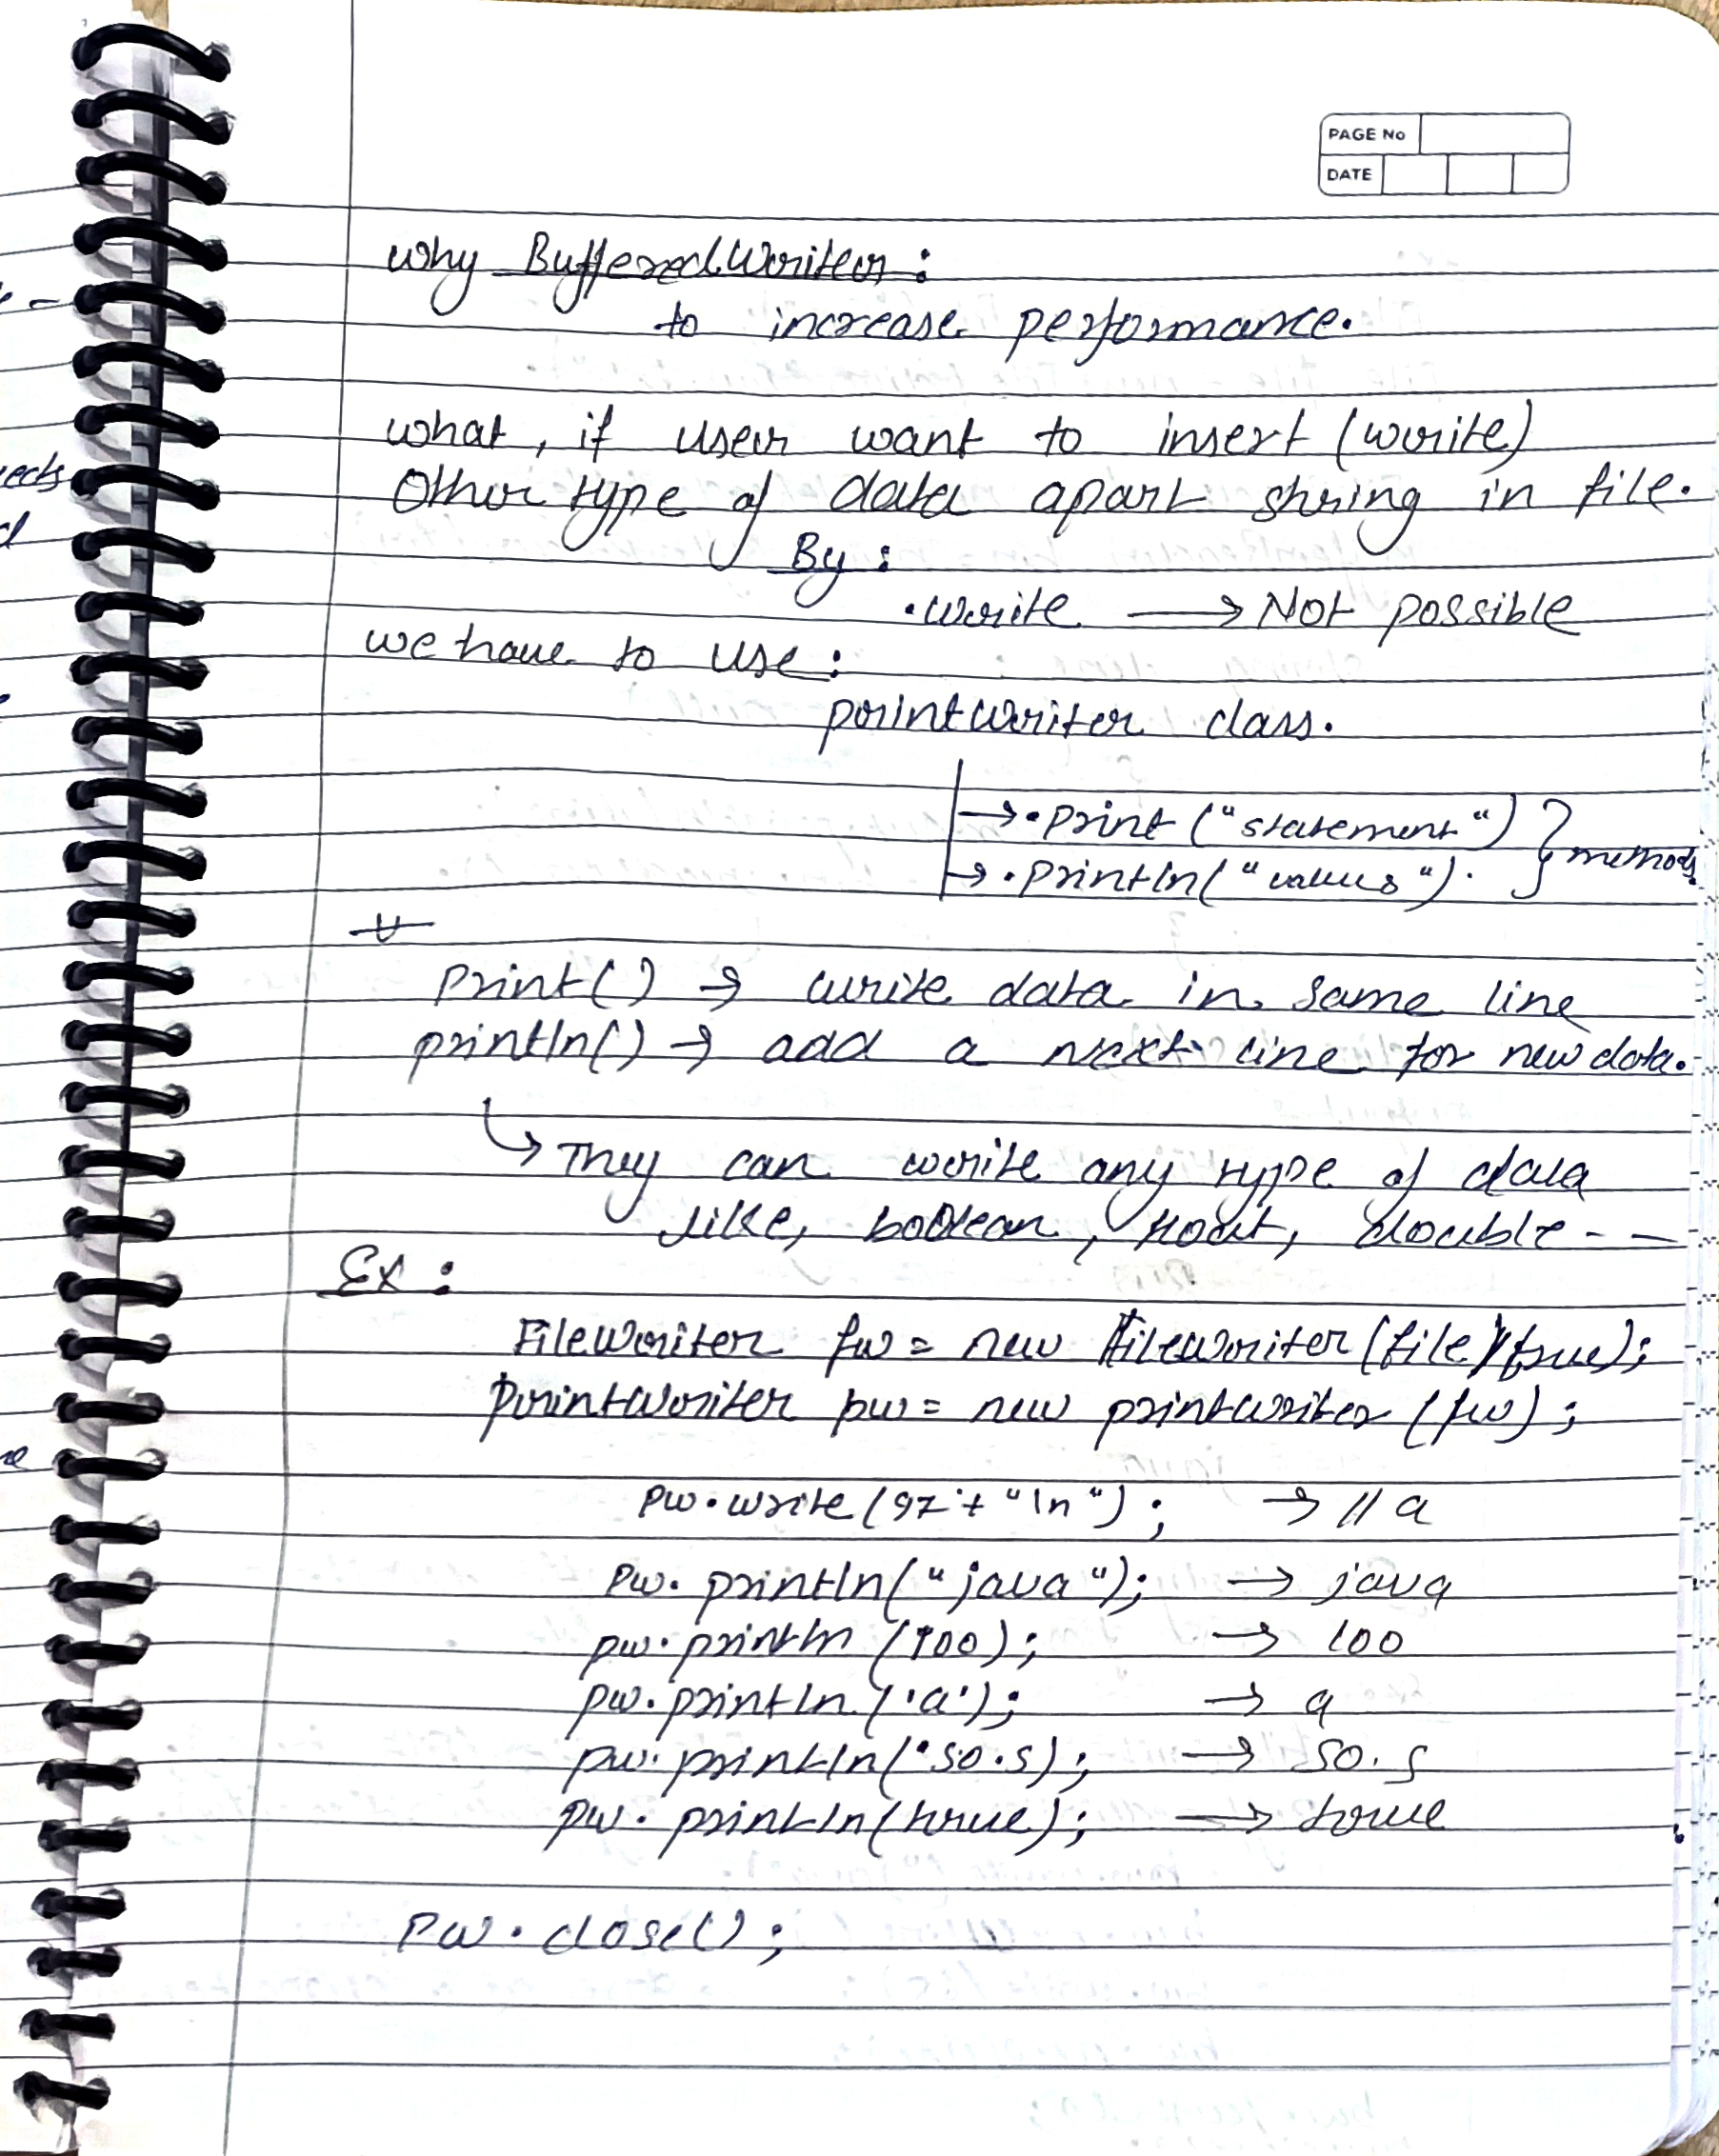 PAGE No
DATE
why BufferedWriter :
to increase performance.
what, if user want to insert (write)
Other type of data apart string in file.
By :
.write → Not possible
we have to use :
printwriter class.
→ .print ("statement")
→ .println("values"). } methods
print() → write data in same line
println() → add a next line for new data.
↳ They can write any type of data
like, boolean, float, double - -
Ex :
FileWriter fw = new fileWriter (file, true);
printWriter pw = new printwriter (fw) ;
pw.write (97 + "\n") ; → // a
pw. println("java"); → java
pw. println (100); → 100
pw. println ('a'); → a
pw. println(50.5) ; → 50.5
pw. println(true) ; → true
pw. close() ;